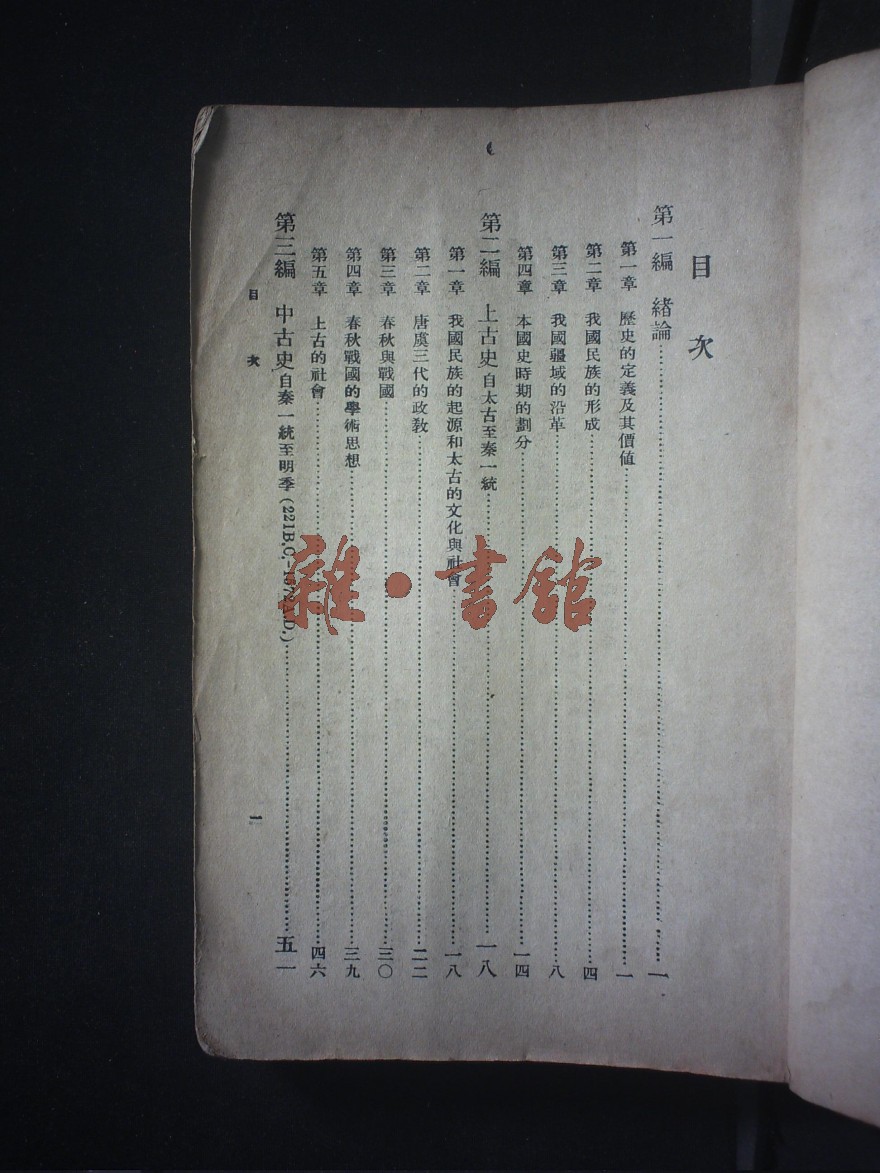 目次
第一編 緒論 一
第一章 歷史的定義及其價値 一
第二章 我國民族的形成 四
第三章 我國疆域的沿革 八
第四章 本國史時期的劃分 一四
第二編 上古史 自太古至秦一統 一八
第一章 我國民族的起源和太古的文化與社會 一八
第二章 唐虞三代的政敎 二二
第三章 春秋與戰國 三〇
第四章 春秋戰國的學術思想 三九
第五章 上古的社會 四六
第三編 中古史 自秦一統至明季 (221B.C.- A.D.) 五一
目次
一
雜·書館